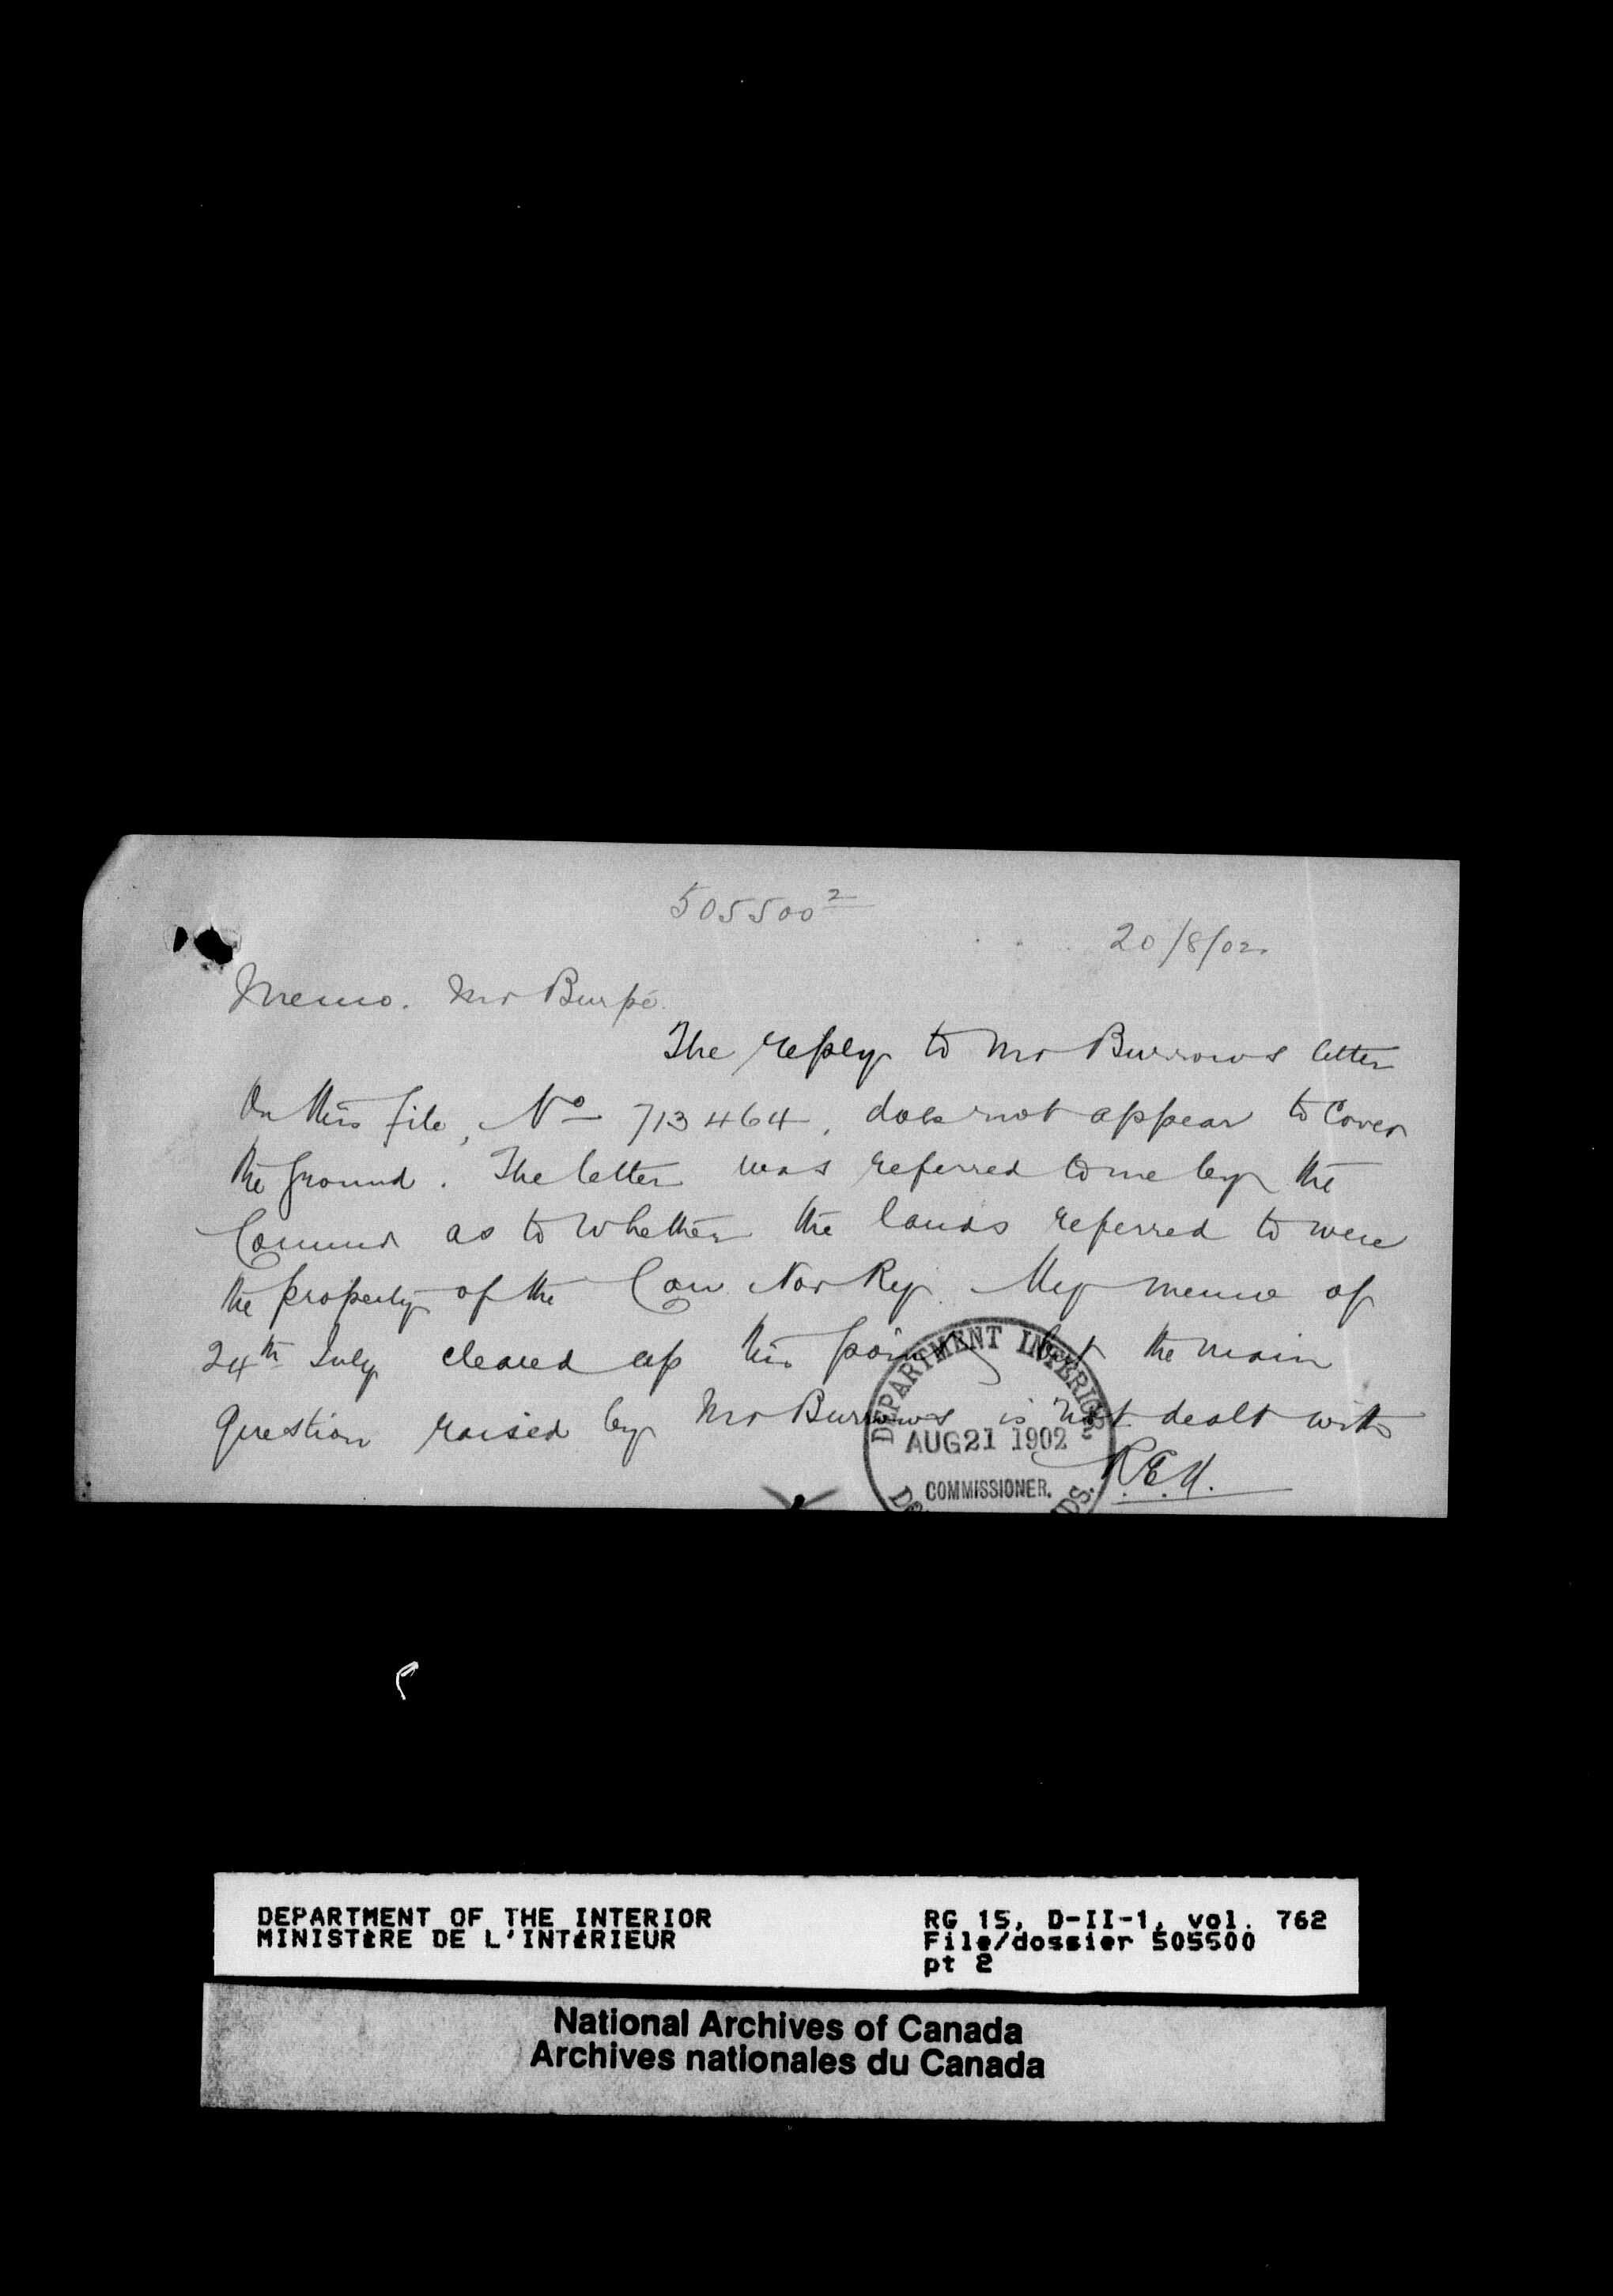 505500²
20/8/02.
Memo. Mr Burpé.
The reply to Mr Burrows letter
on this file, No 713464, does not appear to cover
the ground. The letter was referred to me by the
Commr as to whether the lands referred to were
the property of the Can Nor Ry. My memo of
24th July cleared up this point, but the main
question raised by Mr Burrows is not dealt with
DEPARTMENT INTERIOR
AUG 21 1902
COMMISSIONER.
DEPARTMENT OF THE INTERIOR
MINISTÈRE DE L'INTÉRIEUR
RG 15, D-II-1, vol. 762
File/dossier 505500
pt 2
National Archives of Canada
Archives nationales du Canada